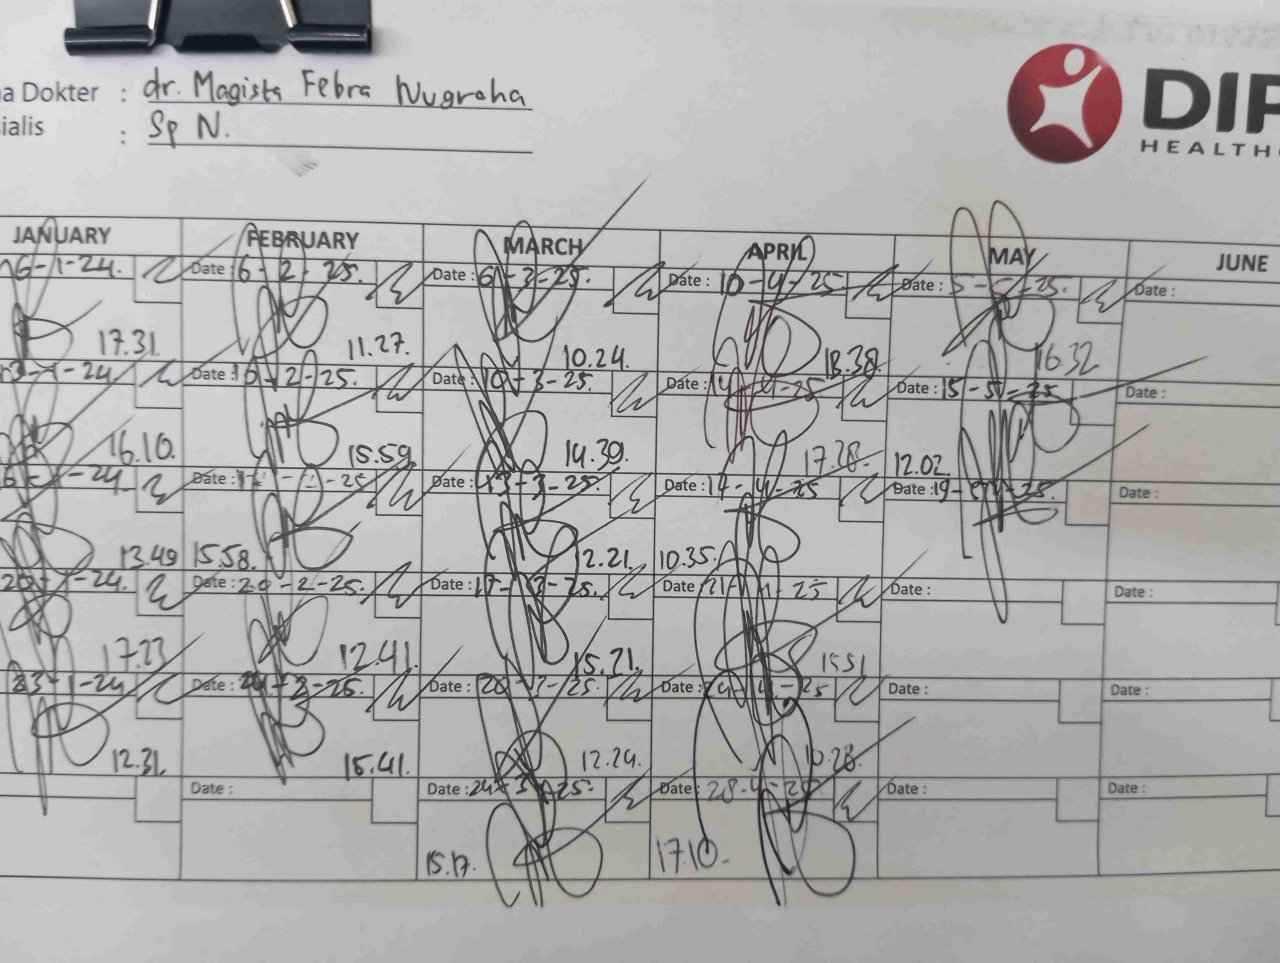 a Dokter : dr. Magista Febra Nugroha
ialis : Sp N.
DIP
HEALTHC
JANUARY FEBRUARY MARCH APRIL MAY JUNE
6-1-24. Date : 6-2-25. Date : 6-3-25. Date : 10-4-25. Date : 5-5-25. Date :
17.31. 11.27. 10.24. 18.38. 16.32
Date : 10-2-25. Date : 10-3-25. Date : Date : 15-5-25 Date :
16.10. 15.59 14.39. 17.28. 12.02.
Date : Date : 13-3-25. Date : 14-4-25 Date : Date :
13.49 15.58. 12.21. 10.35.
20-1-24. Date : 20-2-25. Date : 17-3-25. Date : 21-4-25 Date : Date :
17.23 12.41. 15.21. 15.51
23-1-24 Date : 24-2-25. Date : 20-3-25. Date : Date : Date :
12.31. 15.41. 12.24.
Date : Date : 24-3-25. Date : 28-4-25 Date : Date :
15.17. 17.10.